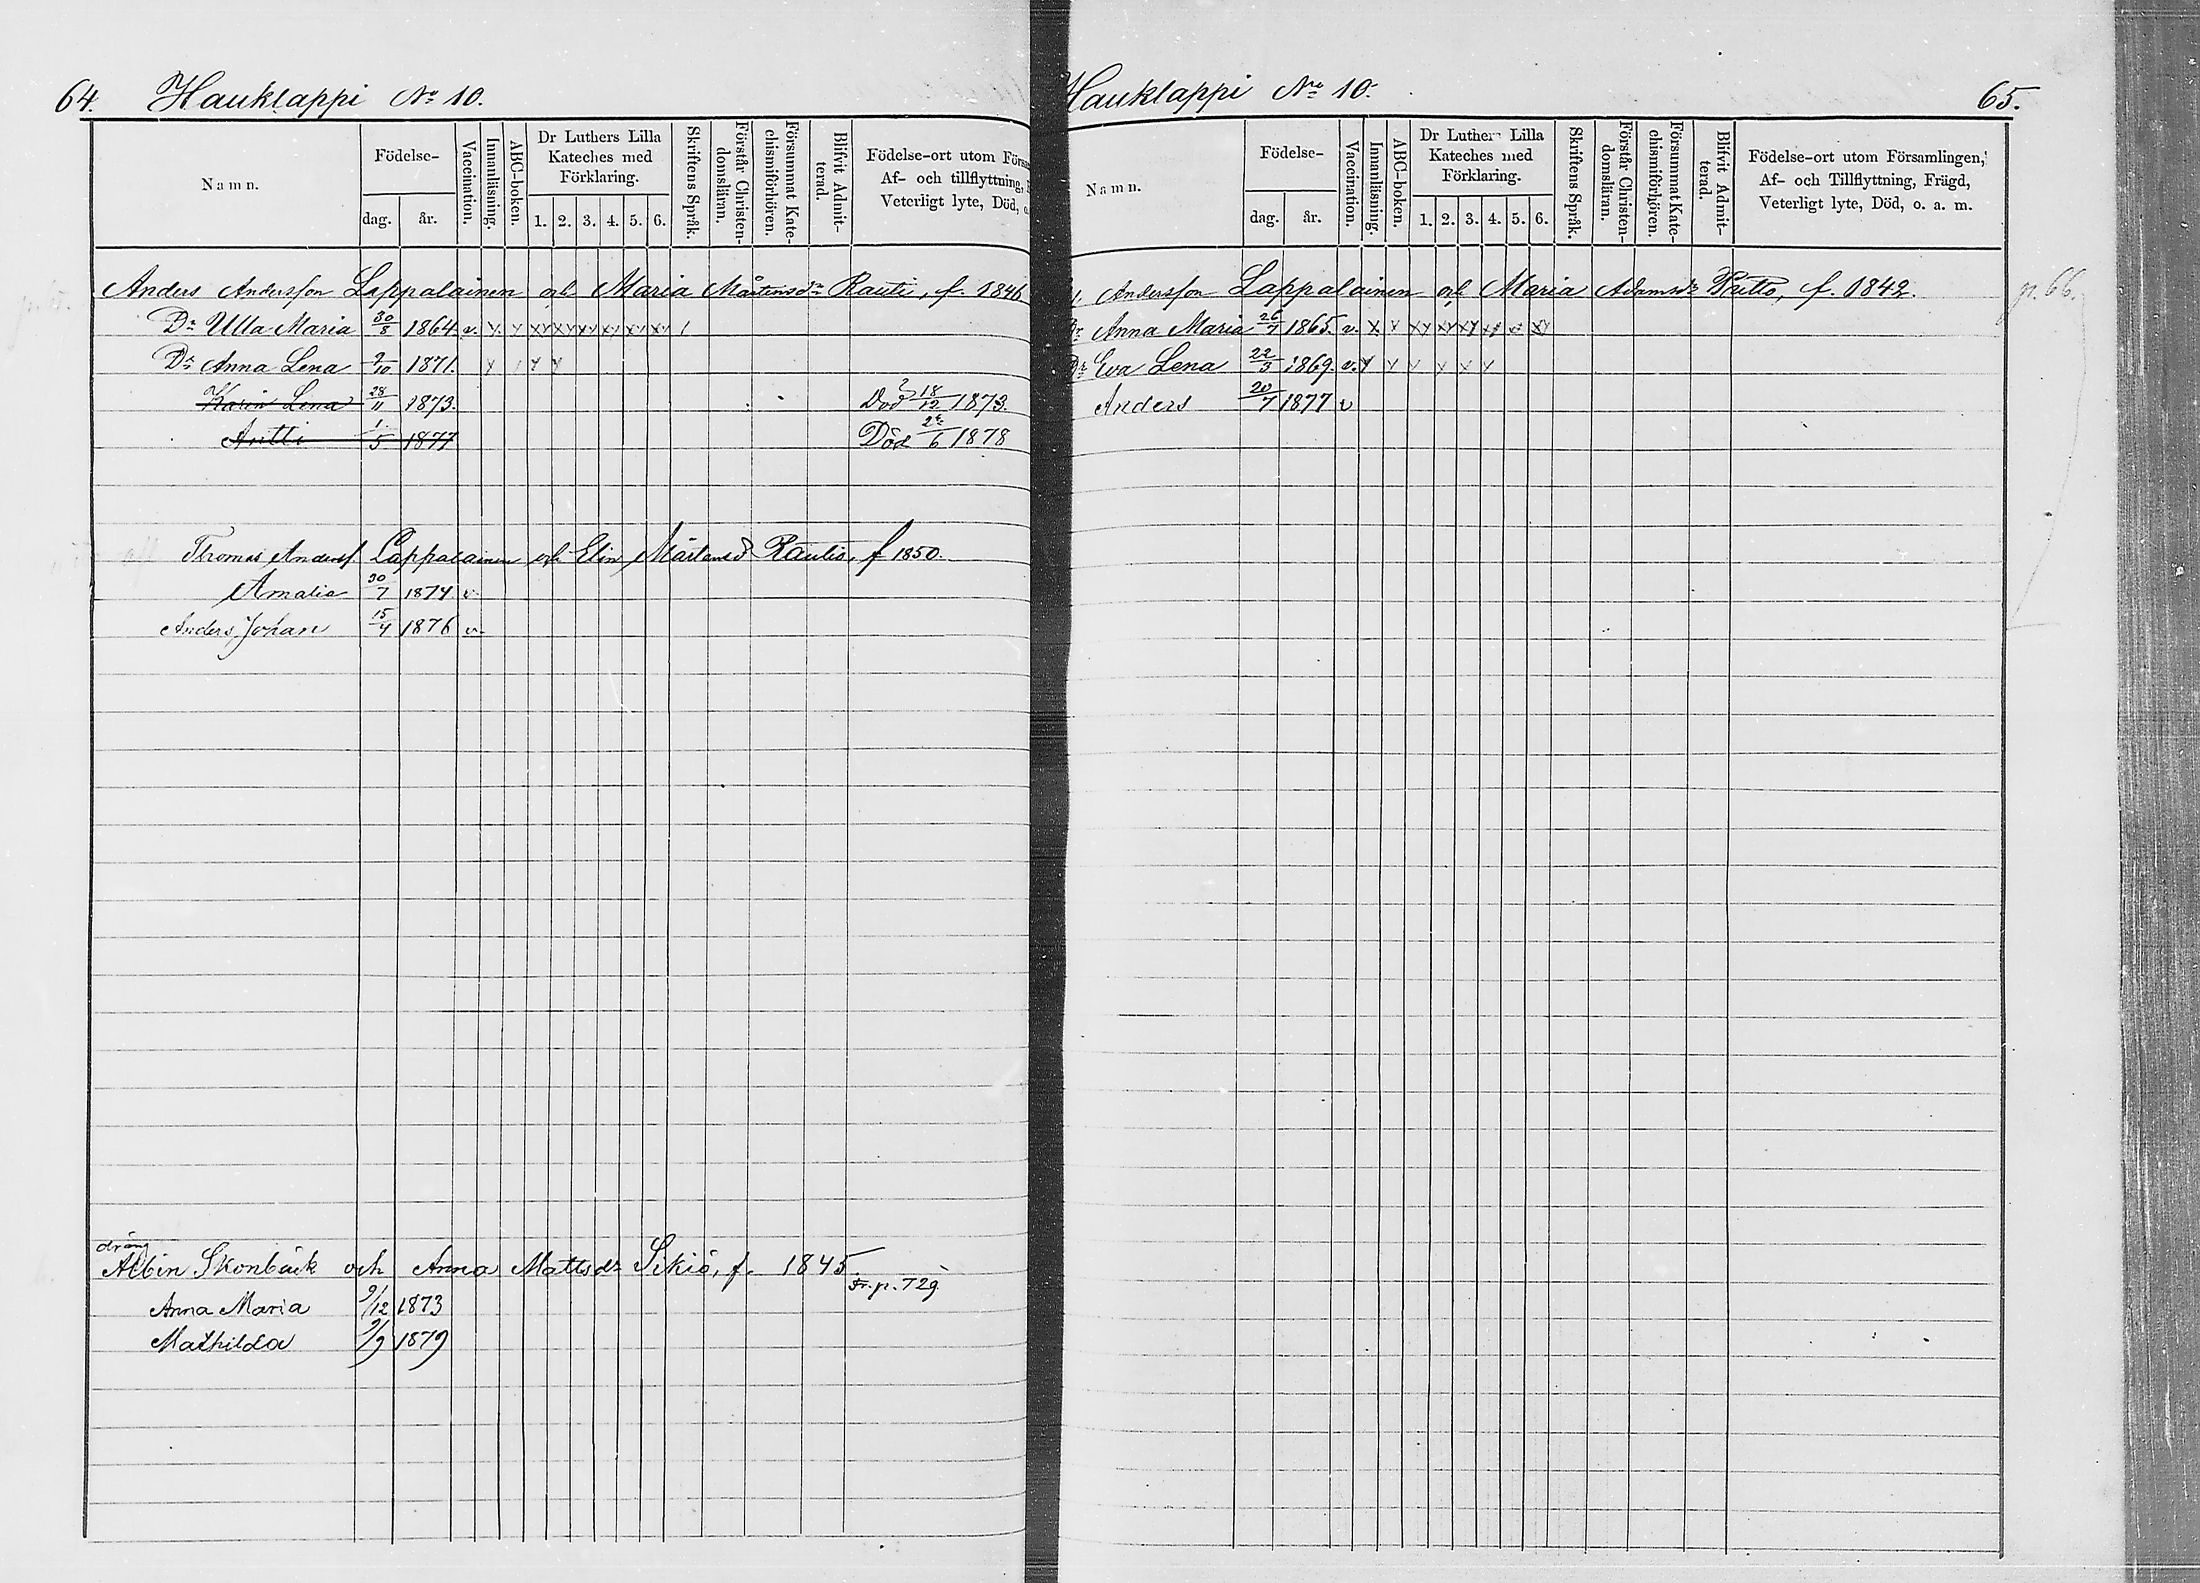 64. Hauklappi No 10.
Namn.
Födelse-
dag.
år.
Vaccination.
Innanläsning.
ABC-boken.
Dr Luthers Lilla
Kateches med
Förklaring.
1. 2. 3. 4. 5. 6.
Skriftens Språk.
Förstår Christen-
domsläran.
Försummat Kate-
chismiförhören.
Blifvit Admit-
terad.
Födelse-ort utom Förs
Af- och tillflyttning,
Veterligt lyte, Död, o.
Anders Andersson Lappalainen och Maria Mårtensdr Rauti, f. 1846
Dr Ulla Maria 30/8 1864 v. y y xy xy xy xy xy xy /
Dr Anna Lena 9/10 1871. y / y y
Karin Lena 28/11 1873. Död 18/12 1873.
Antti 1/5 1877 Död 6 1878
Thomas Anderss. Lappalainen och Elin Mårtensd Rautio, f 1850.
Amalia 30/7 1874 v.
Anders Johan 15/4 1876 v.
dräng
Albin Skonbäck och Anna Mattsdr Sikiö, f. 1845.
Fr. p. 729
Anna Maria 9/12 1873
Mathilda 9/9 1879
Hauklappi No 10. 65.
Namn.
Födelse-
dag.
år.
Vaccination.
Innanläsning.
ABC-boken.
Dr Luthers Lilla
Kateches med
Förklaring.
1. 2. 3. 4. 5. 6.
Skriftens Språk.
Förstår Christen-
domsläran.
Försummat Kate-
chismiförhören.
Blifvit Admit-
terad.
Födelse-ort utom Församlingen,
Af- och Tillflyttning, Frägd,
Veterligt lyte, Död, o. a. m.
Andersson Lappalainen och Maria Adamsdr Hutto, f. 1842. p. 66.
Dr Anna Maria 26/7 1865. v. x x xy xy xy xy v xy
Dr Eva Lena 22/3 1869. v. y y y y y y
Anders 20/7 1877 v